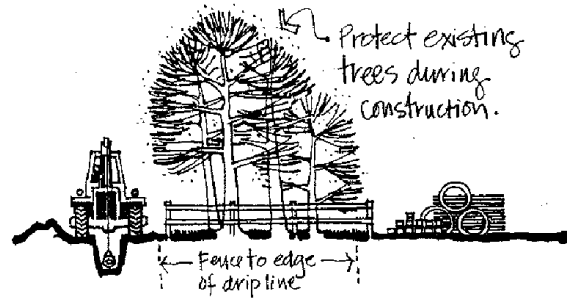 Protect existing
trees during
construction.
Fence to edge
of dripline